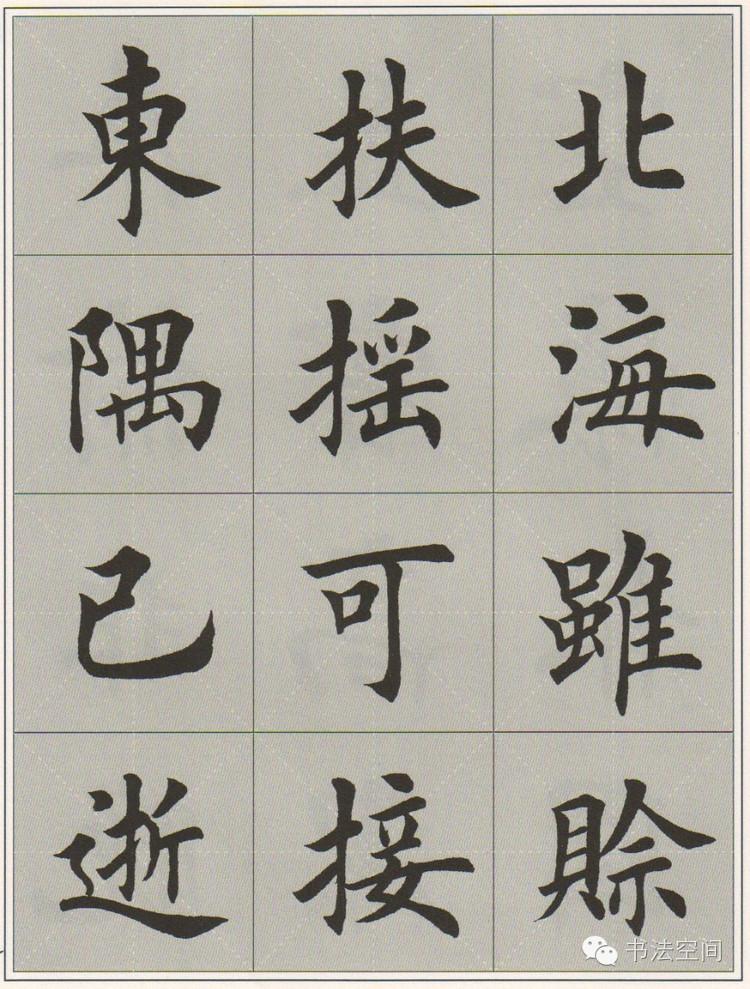 北海雖賒
扶摇可接
東隅已逝
书法空间